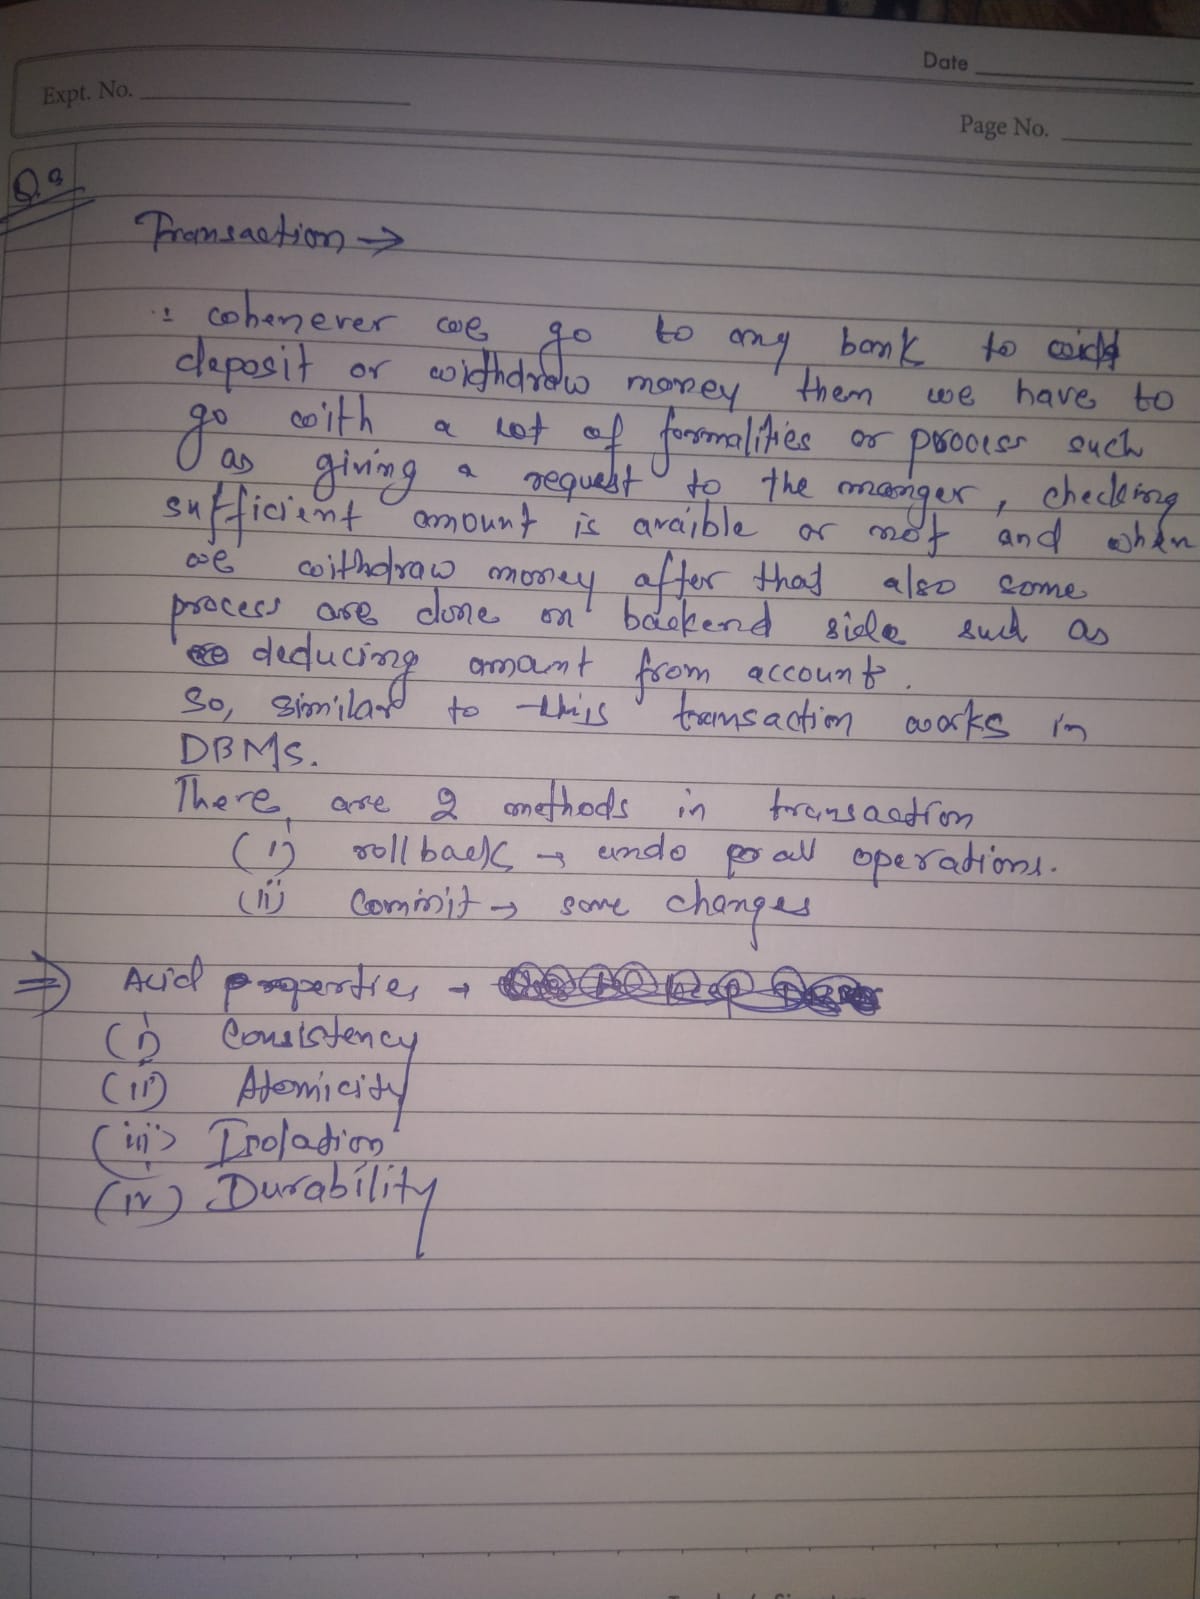 Date
Expt. No.
Page No.
Transaction →
: whenever we go to any bank to
deposit or widthdraw money then we have to
go with a lot of formalities or process such
as giving a request to the manger, checking
sufficient amount is avaible or not and when
we withdraw money after that also some
process are done on backend side such as
deducing amount from account.
So, similar to this transaction works in
DBMS.
There are 2 methods in transaction
(i) rollback → undo all operations.
(ii) Commit → changes
⇒ Acid properties →
(i) Consistency
(ii) Atomicity
(iii) Isolation
(iv) Durability